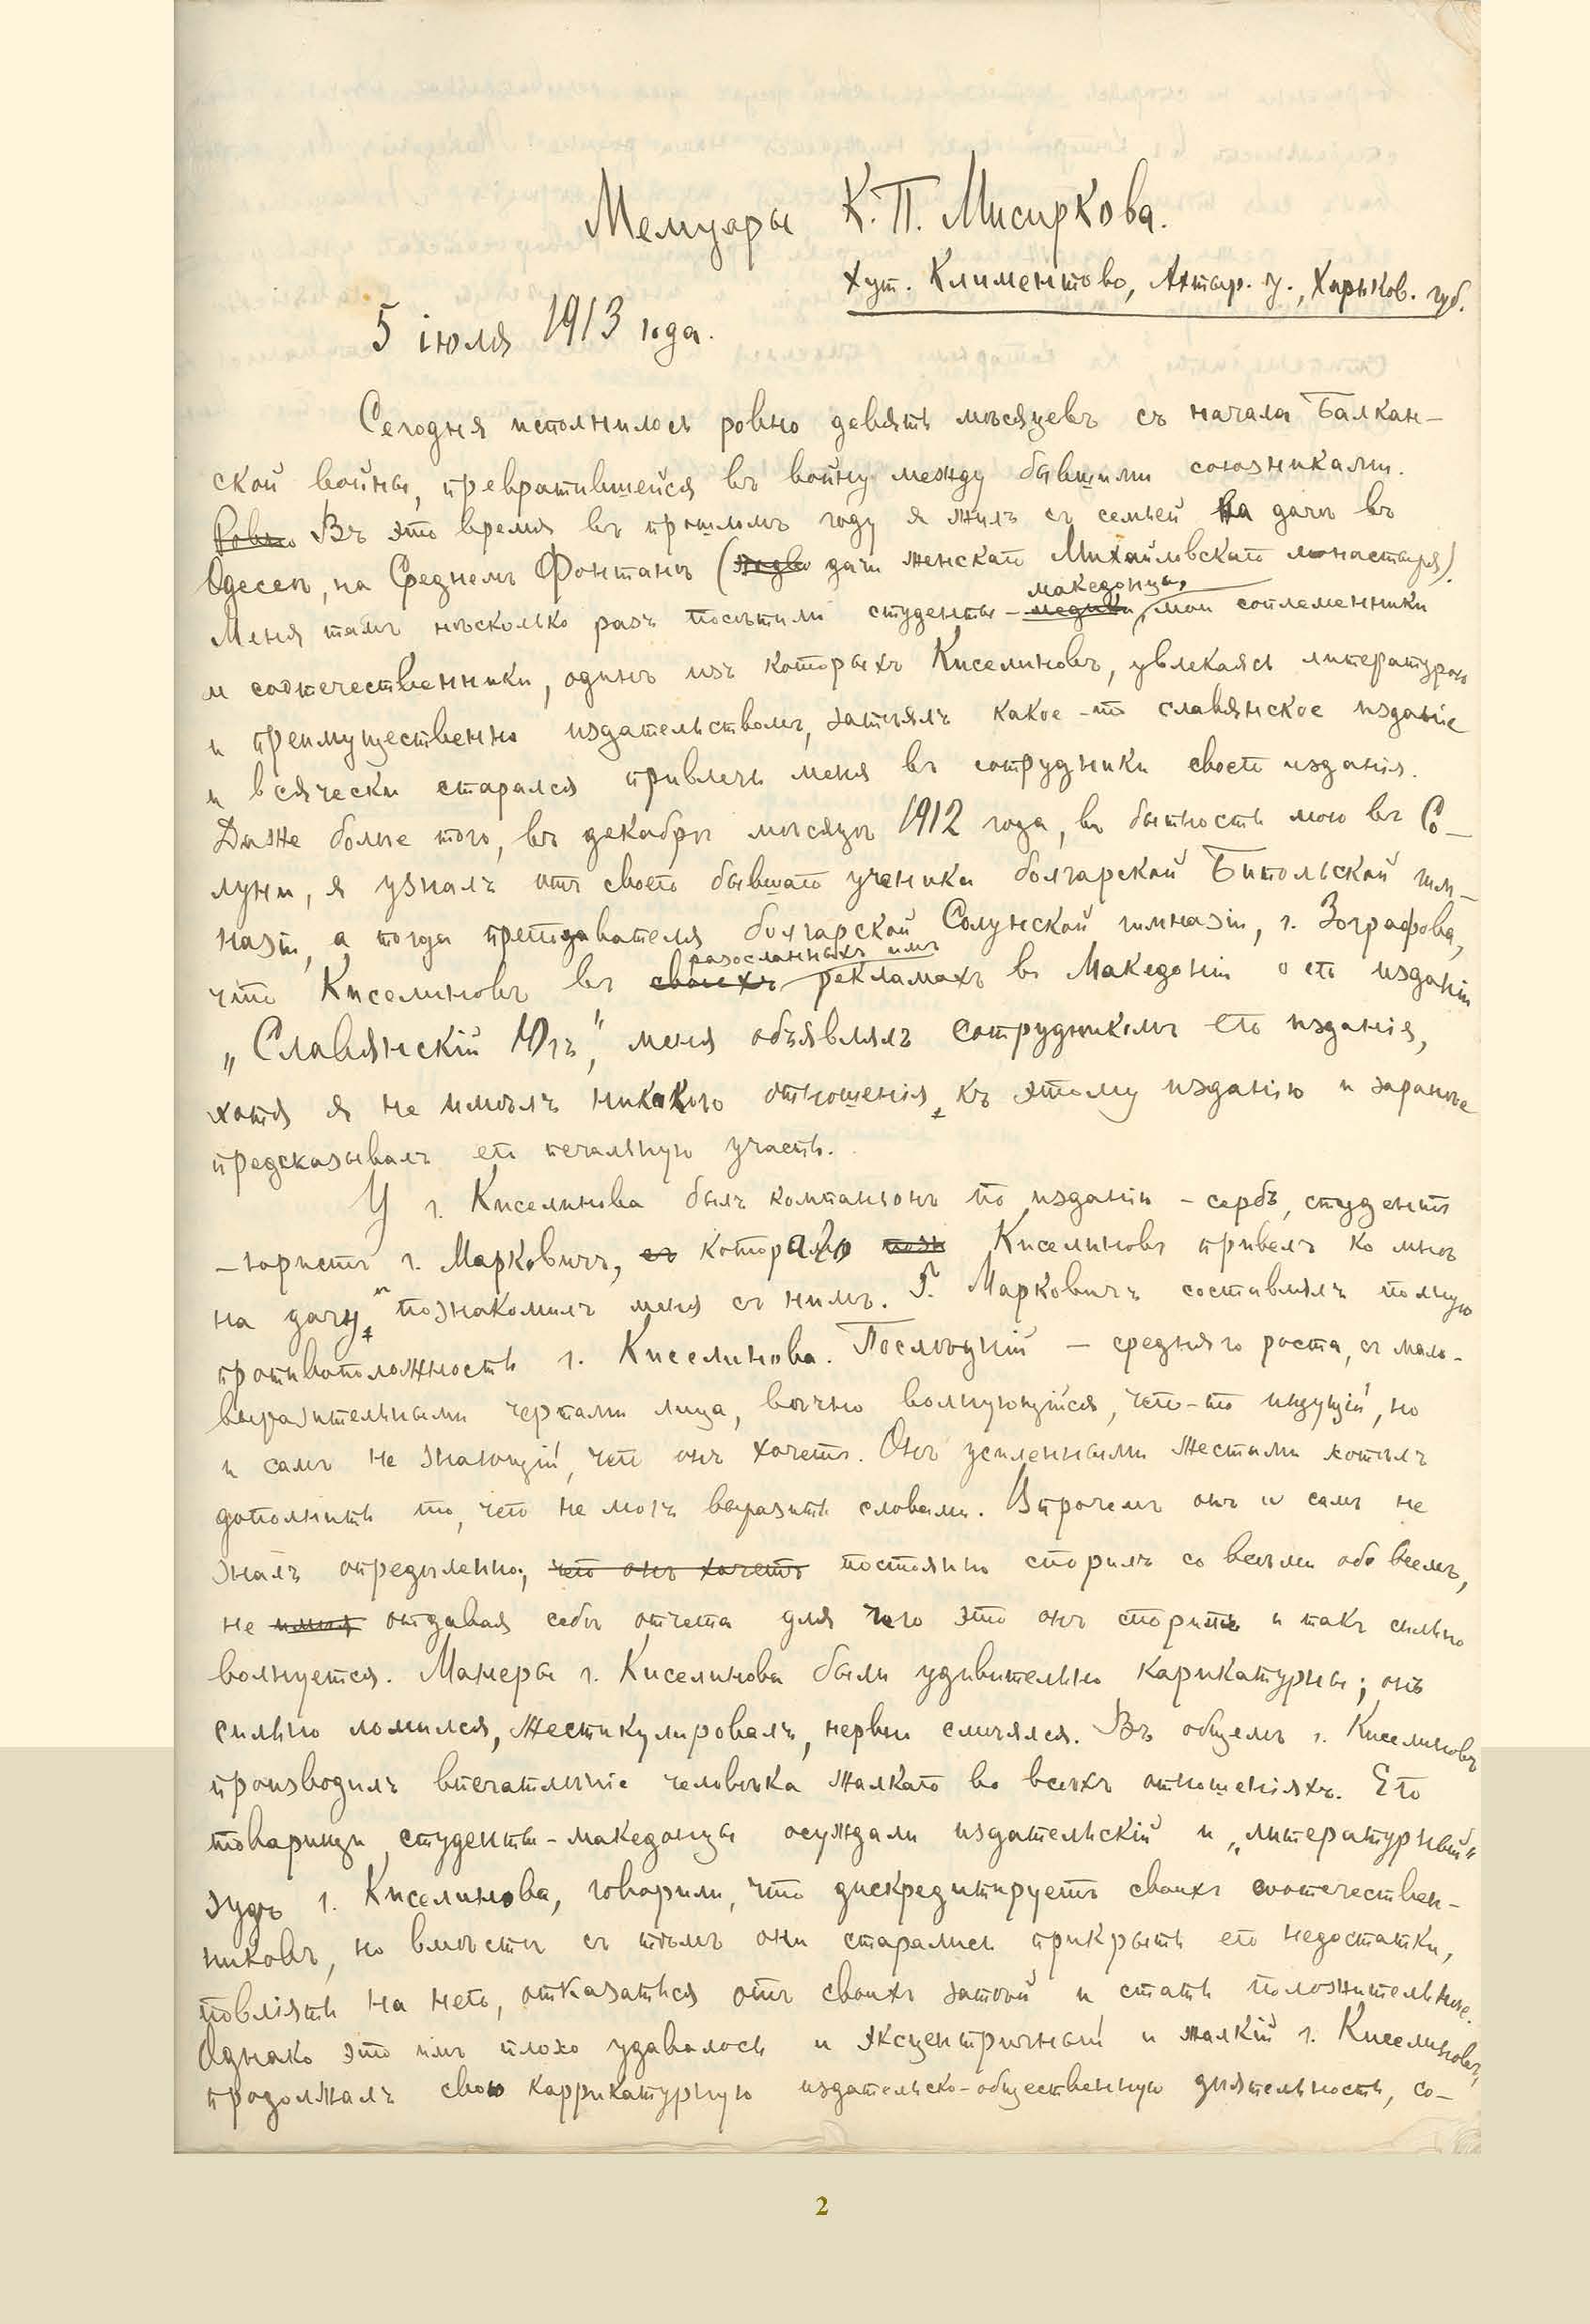 Мемуары К. П. Мисиркова.
хут. Климентово, Ахтыр. у., Харьков. губ.
5 іюля 1913 года.
Сегодня исполнилось ровно девять мѣсяцевъ съ начала Балкан-
ской войны, превратившейся въ войну между бывшими союзниками.
Ровно Въ это время въ прошломъ году я жилъ съ семьей на дачѣ въ
Одессѣ, на Среднемъ Фонтанѣ ( дачи женскаго Михайловскаго монастыря).
македонцы,
Меня тамъ нѣсколько разъ посѣтили студенты-медики, мои соплеменники
и соотечественники, одинъ изъ которыхъ Киселиновъ, увлекаясь литературою
и преимущественно издательствомъ, затѣялъ какое-то славянское изданіе
и всячески старался привлечь меня въ сотрудники своего изданія.
Даже болѣе того, въ декабрѣ мѣсяцѣ 1912 года, въ бытность мою въ Со-
луни, я узналъ отъ своего бывшаго ученика болгарской Битольской гим-
назіи, а тогда преподавателя болгарской Солунской гимназіи, г. Зографова,
разосланныхъ имъ
что Киселиновъ въ своихъ рекламахъ въ Македоніи о его изданіи
„Славянскій Югъ", меня объявлялъ сотрудникомъ его изданія,
хотя я не имѣлъ никакого отношенія къ этому изданію и заранѣе
предсказывалъ его печальную участь.
У г. Киселинова былъ компаньонъ по изданію - сербъ, студентъ
-юристъ г. Марковичъ, съ котораго Киселиновъ привелъ ко мнѣ
на дачу и познакомилъ меня съ нимъ. Г. Марковичъ составлялъ полную
противоположность г. Киселинова. Послѣдній - средняго роста, съ мало-
выразительными чертами лица, вѣчно волнующійся, чего-то ищущій, но
и самъ не знающій, чего онъ хочетъ. Онъ усиленными жестами хотѣлъ
дополнить то, чего не могъ выразить словами. Впрочемъ онъ и самъ не
зналъ опредѣленно, чего онъ хочетъ постоянно спорилъ со всѣми обо всемъ,
не имѣя отдавая себѣ отчета для чего это онъ споритъ и такъ сильно
волнуется. Манеры г. Киселинова были удивительно карикатурны; онъ
сильно ломился, жестикулировалъ, нервно смѣялся. Въ общемъ г. Киселиновъ
производилъ впечатлѣніе человѣка жалкаго во всѣхъ отношеніяхъ. Его
товарищи студенты-македонцы осуждали издательскій и „литературный"
зудъ г. Киселинова, говорили, что дискредитируетъ своихъ соотечествен-
никовъ, но вмѣстѣ съ тѣмъ они старались прикрыть его недостатки,
повліять на него, отказаться отъ своихъ затѣй и стать положительнѣе.
Однако это имъ плохо удавалось и эксцентричный и жалкій г. Киселиновъ,
продолжалъ свою каррикатурную издательско-общественную дѣятельность, со-
2